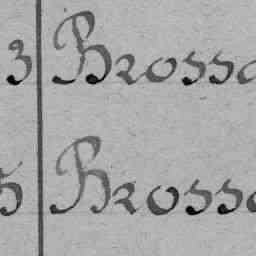 3 Brossa
5 Brossa